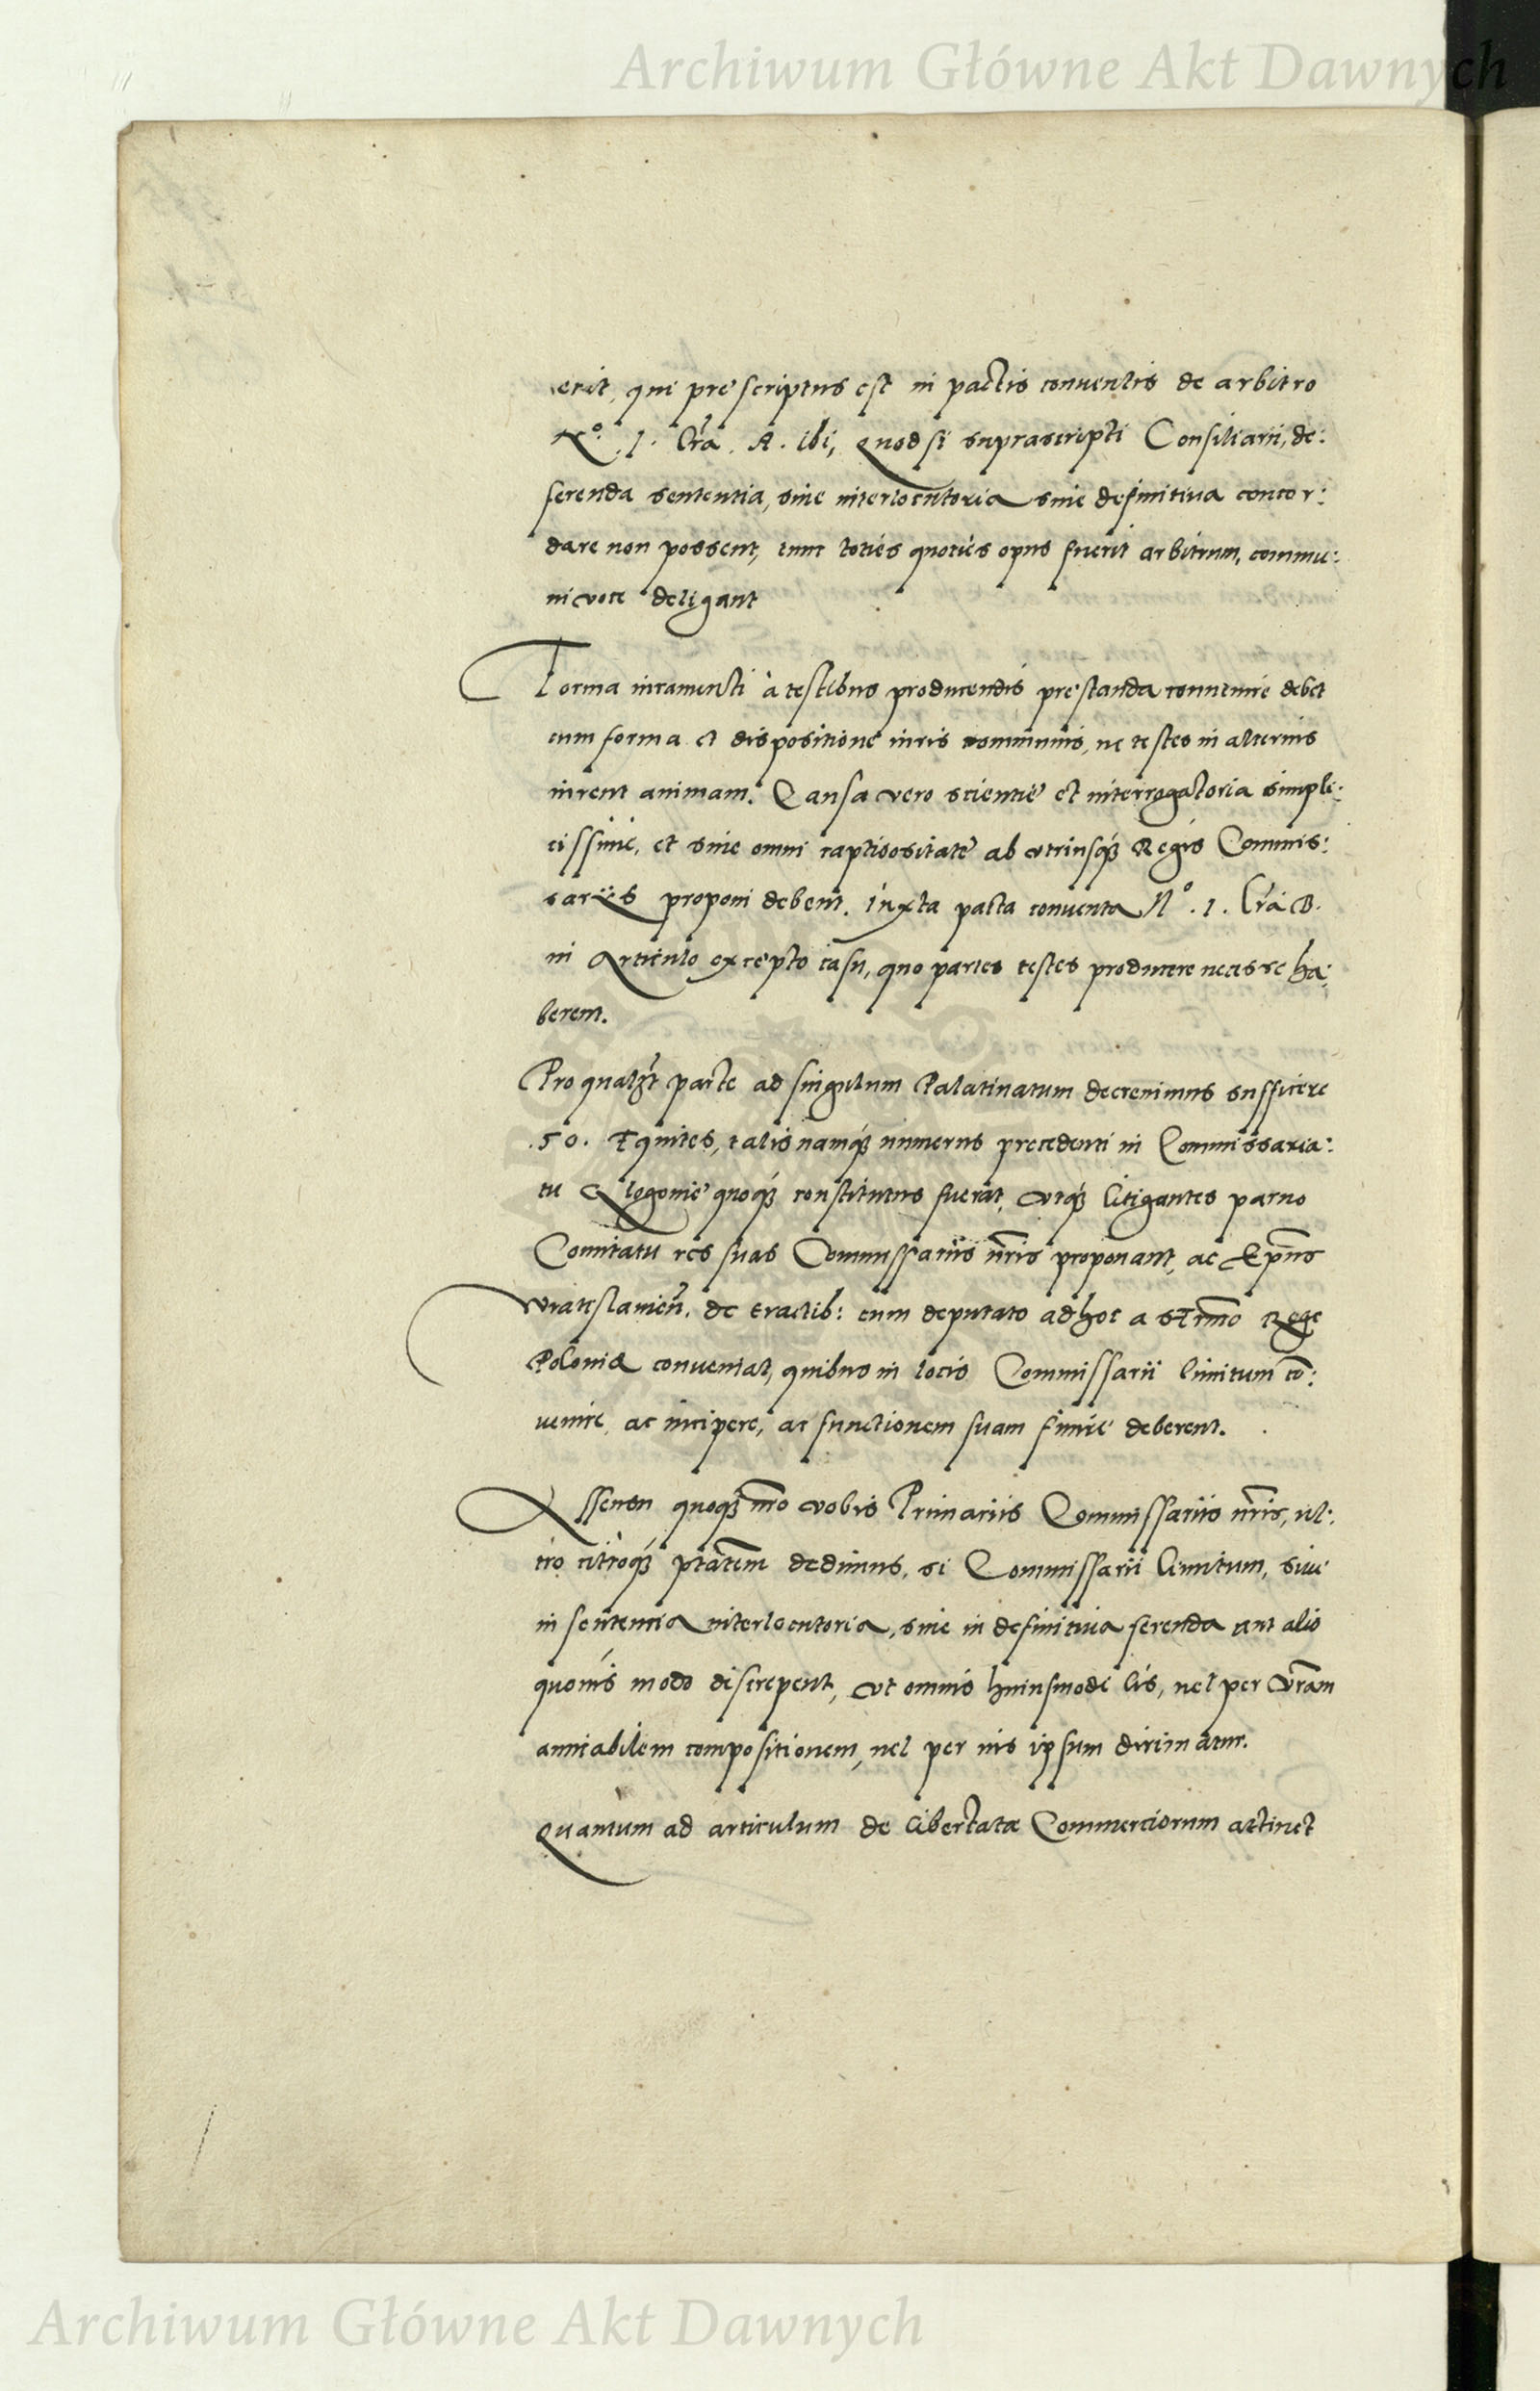 Archiwum Główne Akt Dawnych
erit, qui prescriptus est in pactis conventis de arbitro
N.º 1. Lrã. A. ibi, Quod si suprascripti Consiliarii, de:
ferenda sententia, siue interlocutoria siue definitiua concor:
dare non possent, tunc toties quoties opus fuerit arbitrum, commu:
ni voce deligant
Forma iuramenti à testibus producendis prestanda conuenire debet
cum forma et dispositione iuris communis, ne testes in alterius
iurent animam. Causa vero scientie et interrogatoria simpli:
cissime, et sine omni captiositate ab vtriusq́ Regis Commis:
sariis proponi debent. iuxta pacta conventa N.º 1. Lrã B.
in Articulo excepto casu, quo partes testes producere necesse ha:
berent.
Pro qualȝt parte ad singulum Palatinatum decreuimus sufficere
.50. Equites, talis namq́ numerus precedenti in Commissaria:
tu Glogouie quoq́ constitutus fuerat, vtq́ litigantes paruo
Comitatu res suas Commissariis nr̃is proponant, ac Ep̃us
Vratislauieñ. de tractib: cum deputato ad hoc a Sermõ Rege
Poloniæ conueniat, quibus in locis Commissarii limitum cõ:
uenire, ac incipere, ac functionem suam finire deberent.
Assensu quoq́ nrõ vobis Primariis Commissariis nr̃is, ul:
tro citroq́ ptãtem dedimus, si Commissarii limitum, siue
in sententia interlocutoria, siue in definitiua ferenda aut alio
quouis modo discrepent, vt omnis huiusmodi lis, uel per vr̃am
amicabilem compositionem, uel per uis ipsum dirimatur.
Quantum ad articulum de libertate Commerciorum attinet
Archiwum Główne Akt Dawnych